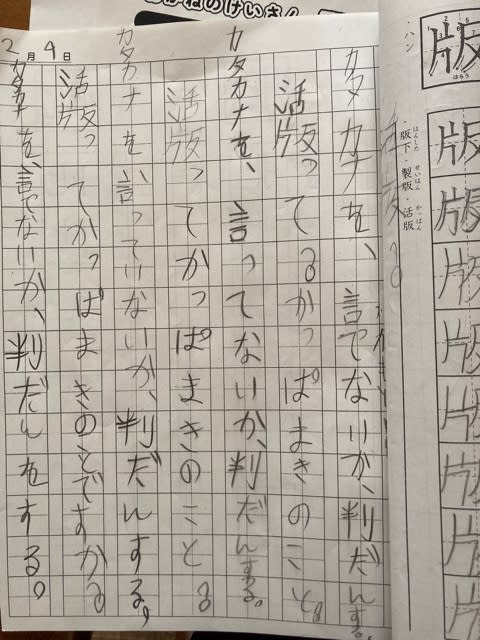 のけいさん
版
はらう
・ハン
・版下・製版・活版
はんした せいはん かっぱん
版
版
カタカナを、言でないか、判だんする。
活版ってるかっぱまきのこと。
カタカナを、言ってないか、判だんする。
活版ってかっぱまきのこと
カタカナを言っていないか、判だんする。
活版ってかっぱまきのことですか
カタカナを、言でないか、判だんをする。
2月9日